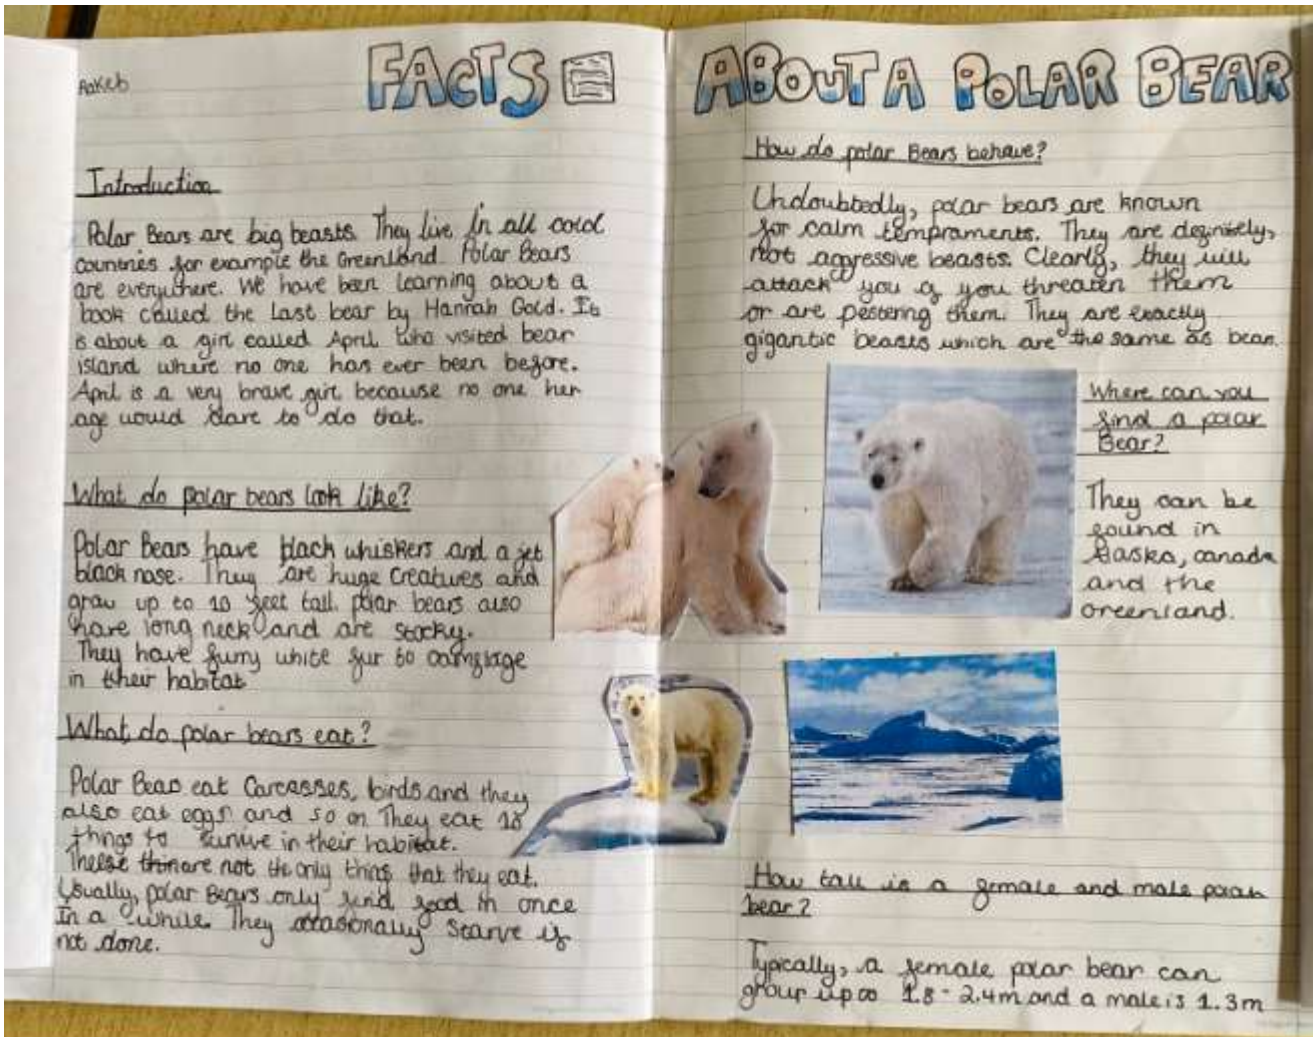 FACTS
ABOUT A POLAR BEAR
Introduction
Polar Bears are big beasts. They live in all cold
countries for example the Greenland. Polar Bears
are everywhere. We have been learning about a
book called the Last bear by Hannah Gold. It
is about a girl called April who visited bear
island where no one has ever been before.
April is a very brave girl because no one her
age would dare to do that.
What do polar bears look like?
Polar Bears have black whiskers and a jet
black nose. They are huge creatures and
grow up to 10 feet tall. polar bears also
have long neck and are stocky.
They have furry white fur to
in their habitat
What do polar bears eat?
Polar Bears eat Carcasses, birds and they
also eat eggs and so on. They eat
things to survive in their habitat.
are not the only thing that they eat.
Usually, polar Bears only find food in once
In a while. They occasionally starve if
not done.
How do polar Bears behave?
Undoubtedly, polar bears are known
for calm tempraments. They are definitely,
not aggressive beasts. Clearly, they will
attack you if you threaten them
or are pestering them. They are exactly
gigantic beasts which are the same as bear.
Where can you
find a polar
Bear?
They can be
found in
Alaska, canada
and the
Greenland.
How tall is a female and male polar
bear?
Typically, a female polar bear can
grow up to 1.8-2.4m and a male is 1.3m